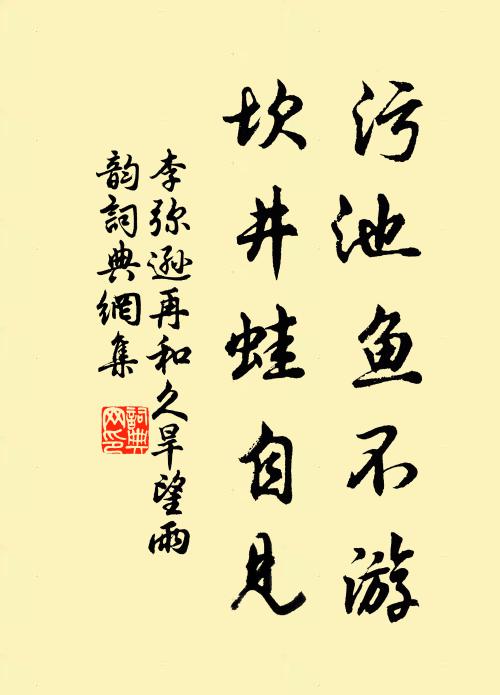 污池鱼不游
坎井蛙自见
李弥逊再和久旱望雨
韵詞典網集
詞典
网印